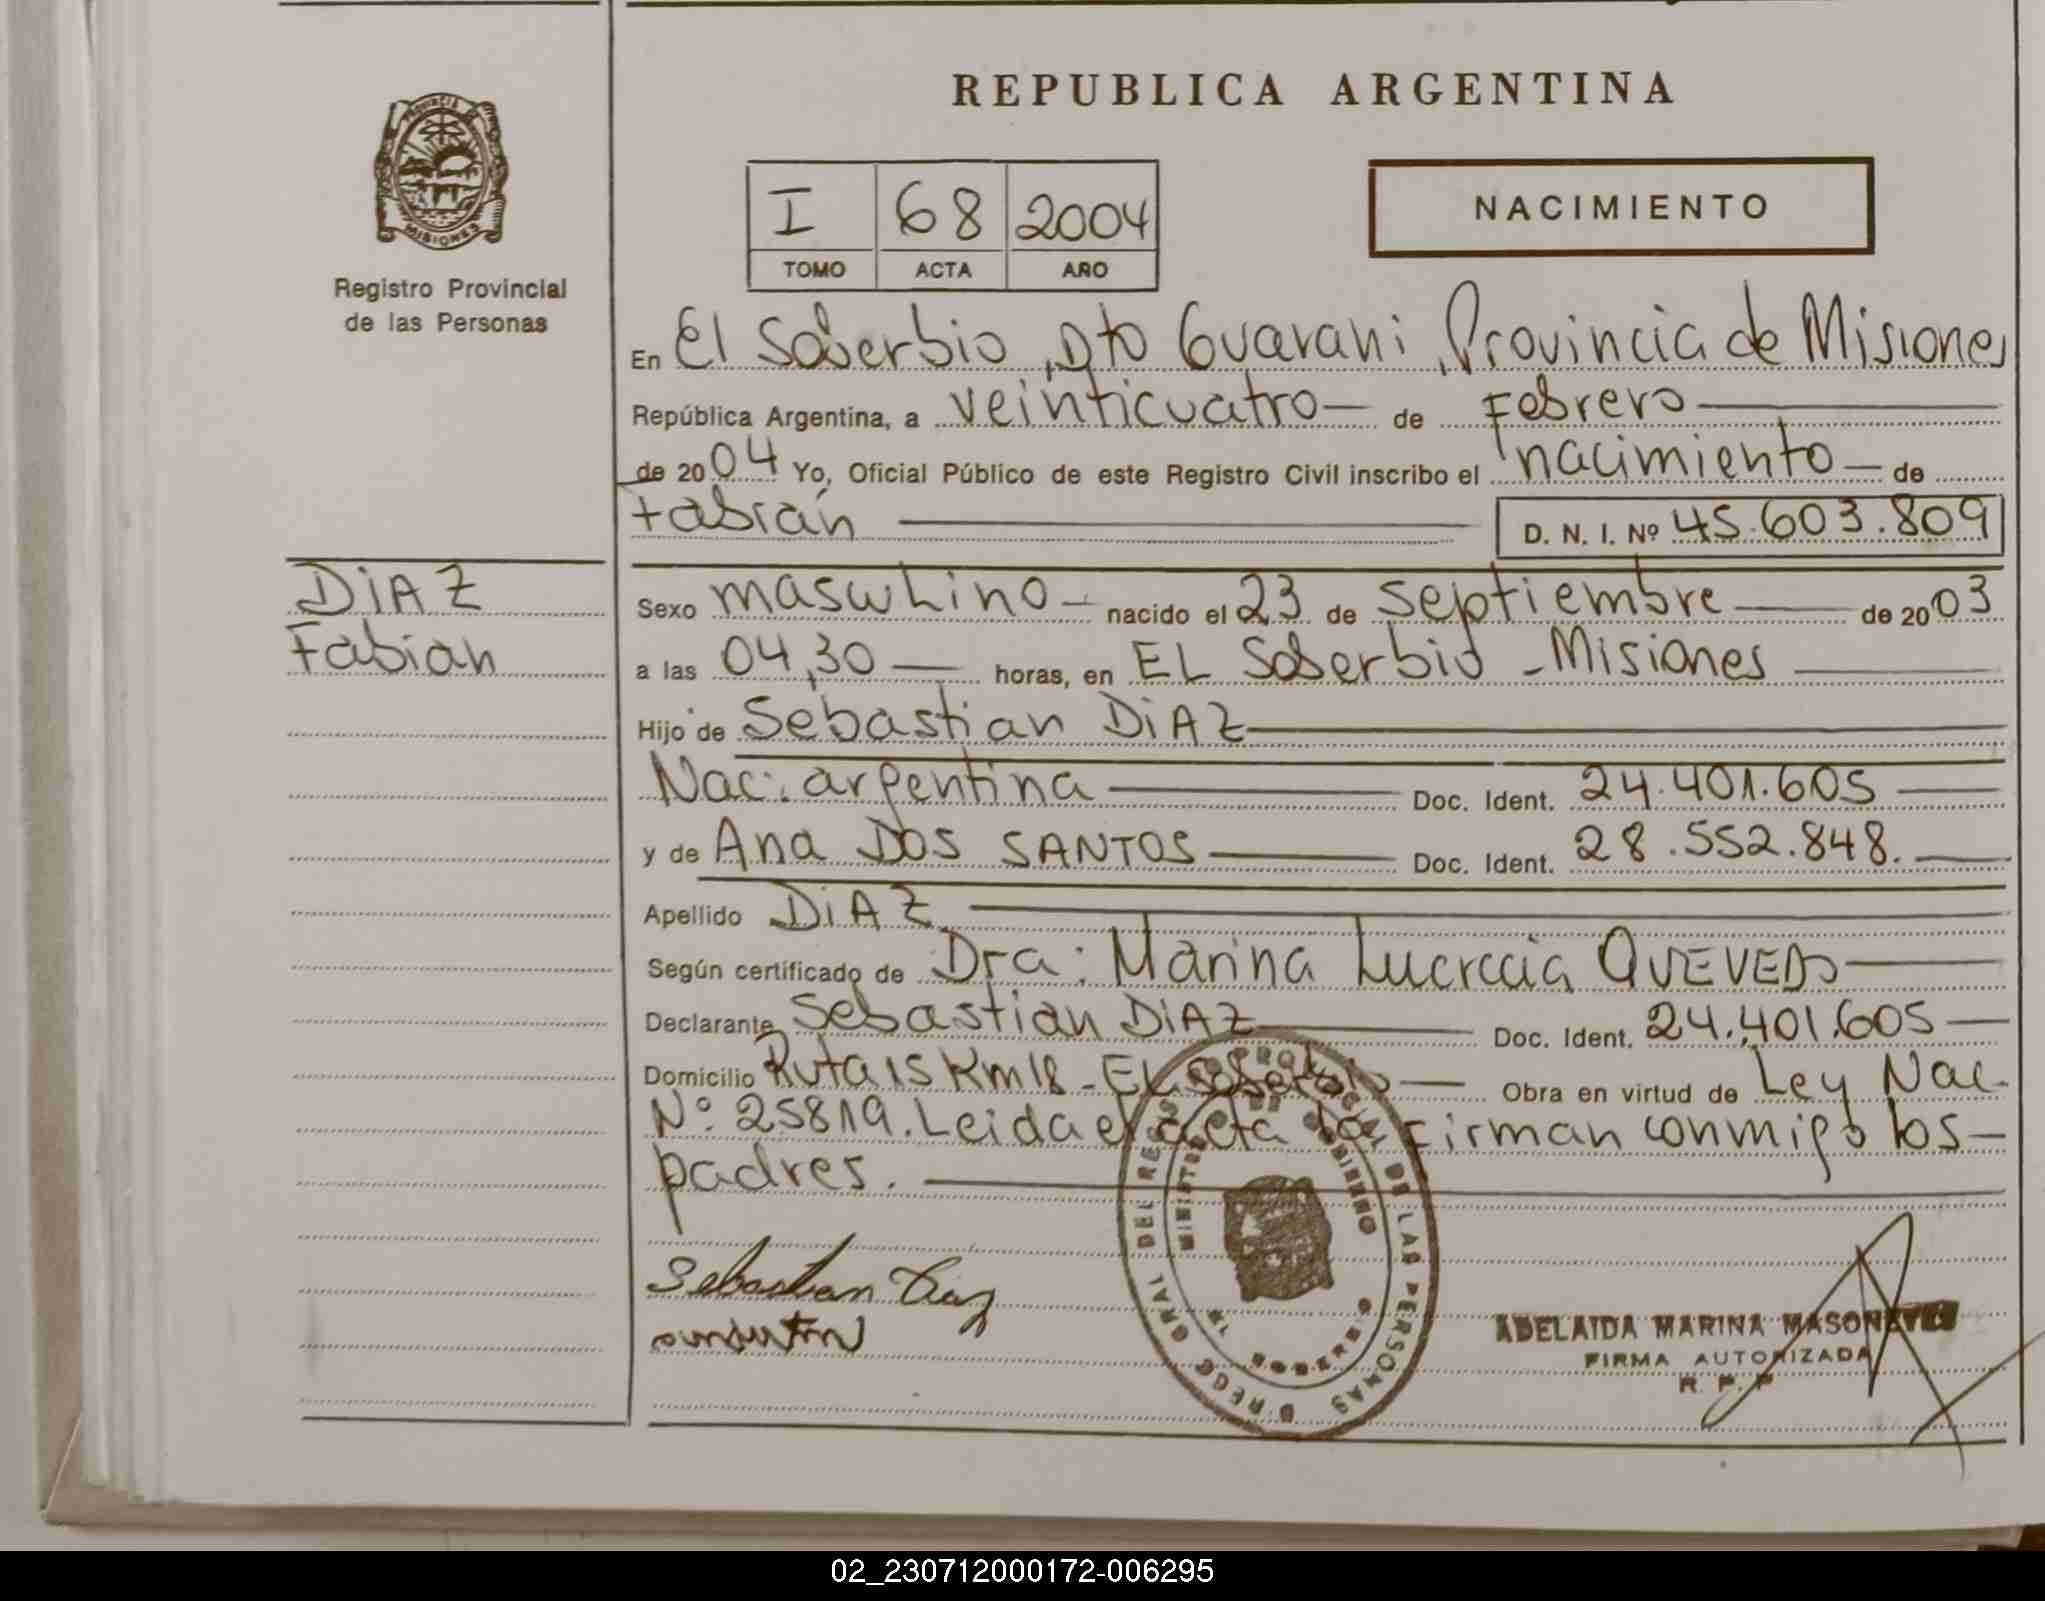 REPUBLICA ARGENTINA
PROVINCIA
MISIONES
Registro Provincial
de las Personas
I 68 2004
TOMO ACTA AÑO
NACIMIENTO
En El Soberbio, Dto Guarani, Provincia de Misiones
República Argentina, a veinticuatro — de Febrero —
de 2004 Yo, Oficial Público de este Registro Civil inscribo el nacimiento — de
Fabián — D. N. I. Nº 45.603.809
DIAZ
Fabian
Sexo masculino — nacido el 23 de septiembre — de 2003
a las 04,30 — horas, en EL Soberbio - Misiones —
Hijo de Sebastian DiAZ —
Nac: argentina — Doc. Ident. 24.401.605 —
y de Ana DOS SANTOS — Doc. Ident. 28.552.848. —
Apellido DiAZ —
Según certificado de Dra: Marina Lucrecia QUEVEDO —
Declarante Sebastian DiAZ — Doc. Ident. 24.401.605 —
Domicilio Ruta 15 Km 18 - EL Soberbio — Obra en virtud de Ley Nac.
Nº: 25819. Leida el acta la firman conmigo los —
padres. —
Sebastian Diaz
ADELAIDA MARINA
FIRMA AUTORIZADA
R. P. P
DE LAS PERSONAS
02_230712000172-006295